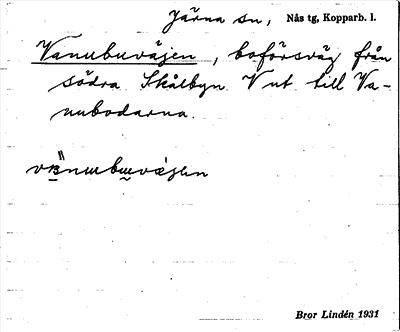 Järna sn, Nås tg, Kopparb. l.
Vanubuväjen, boförsväg från
södra Skålbyn V ut till Va-
nubodarna.
Bror Lindén 1931